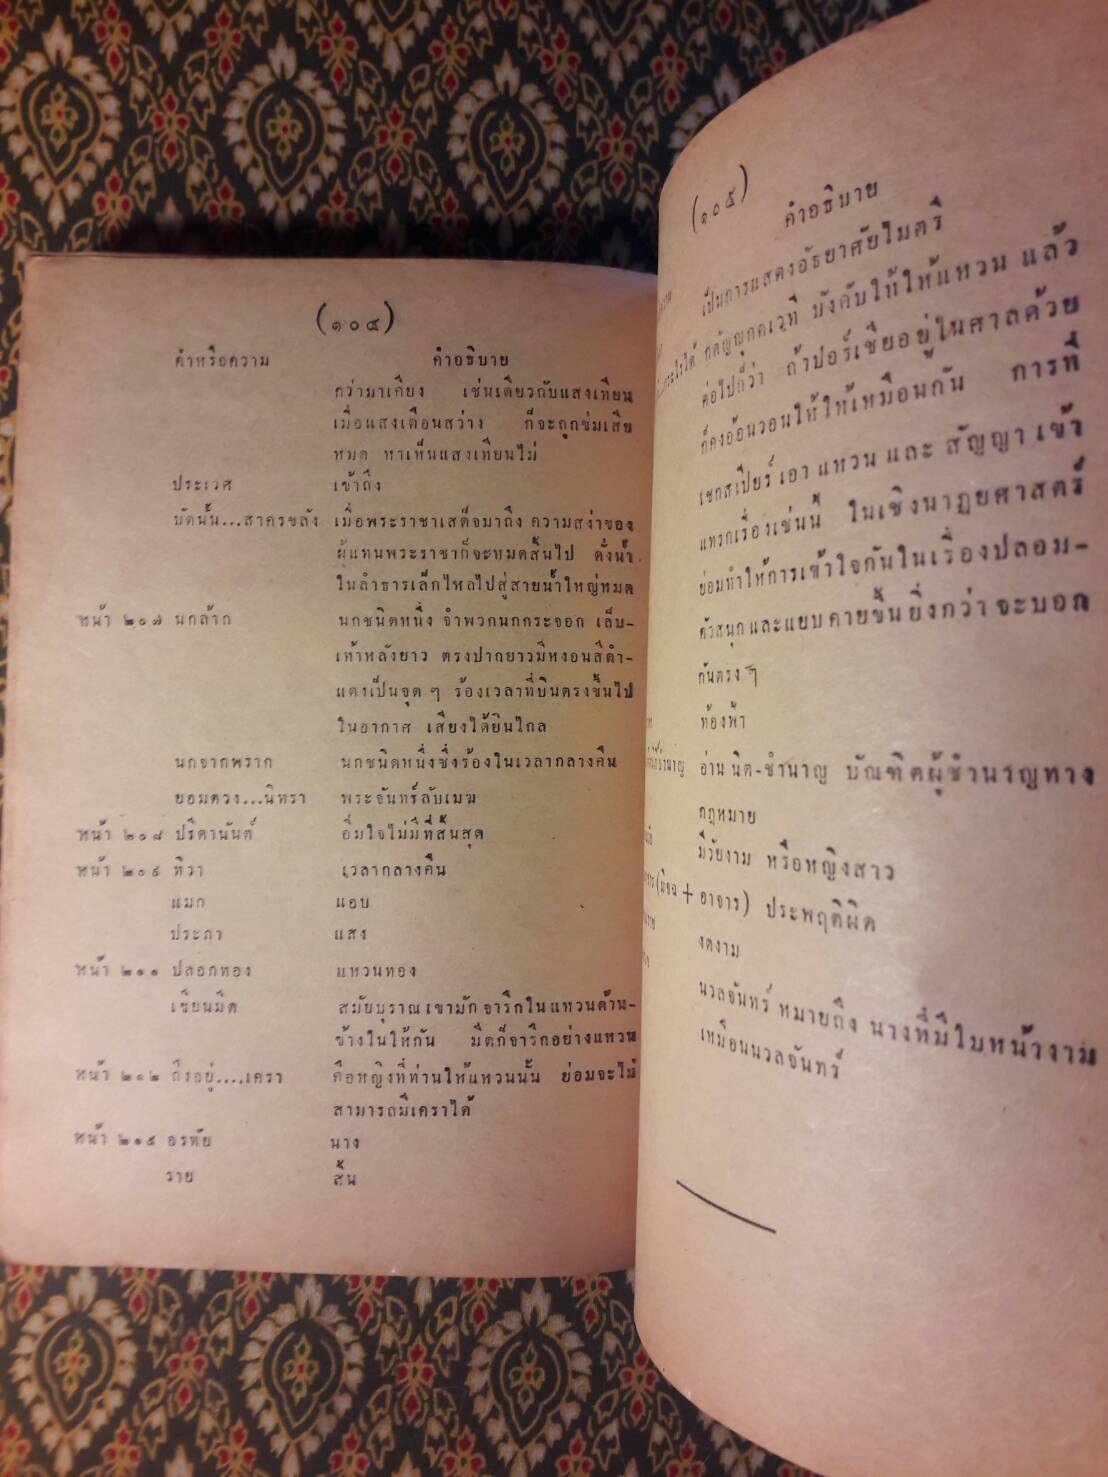 (๑๐๔)
คำหรือความ คำอธิบาย
กว่ามาเคียง เช่นเดียวกับแสงเทียน
เมื่อแสงเดือนสว่าง ก็จะถูกข่มเสีย
หมด หาเห็นแสงเทียนไม่
ประเวศ เข้าถึง
บัดนั้น...สาครขลัง เมื่อพระราชาเสด็จมาถึง ความสง่าของ
ผู้แทนพระราชาก็จะหมดสิ้นไป ดั่งน้ำ
ในลำธารเล็กไหลไปสู่สายน้ำใหญ่หมด
หน้า ๒๐๗ นกล้าก นกชนิดหนึ่ง จำพวกนกกระจอก เล็บ-
เท้าหลังยาว ตรงปากยาวมีหงอนสีดำ-
แดงเป็นจุด ๆ ร้องเวลาที่บินตรงขึ้นไป
ในอากาศ เสียงได้ยินไกล
นกจากพราก นกชนิดหนึ่งซึ่งร้องในเวลากลางคืน
ยอมดวง...นิทรา พระจันทร์ลับเมฆ
หน้า ๒๐๘ ปรีดานันต์ อิ่มใจไม่มีที่สิ้นสุด
หน้า ๒๐๙ ทิวา เวลากลางคืน
แมก แอบ
ประภา แสง
หน้า ๒๑๑ ปลอกทอง แหวนทอง
เขียนมีด สมัยบุราณ เขามักจารึกในแหวนด้าน-
ข้างในให้กัน มีดก็จารึกอย่างแหวน
หน้า ๒๑๒ ถึงอยู่....เครา คือหญิงที่ท่านให้แหวนนั้น ย่อมจะไม่
สามารถมีเคราได้
หน้า ๒๑๕ อรทัย นาง
ราย สิ้น
(๑๐๕)
คำอธิบาย
เป็นการแสดงอัธยาศัยไมตรี
กตัญญุกตเวที บังคับให้ให้แหวน แล้ว
ต่อไปก็ว่า ถ้าปอร์เชียอยู่ในศาลด้วย
ก็คงอ้อนวอนให้ให้เหมือนกัน การที่
เชกสเปียร์ เอา แหวน และ สัญญา เข้า
แทรกเรื่องเช่นนี้ ในเชิงนาฏยศาสตร์
ย่อมทำให้การเข้าใจกันในเรื่องปลอม-
ตัวสนุก และแยบคายขึ้นยิ่งกว่า จะบอก
กันตรง ๆ
ท้องฟ้า
อ่าน นิต-ชำนาญ บัณฑิตผู้ชำนาญทาง
กฎหมาย
มีวัยงาม หรือหญิงสาว
(มิจฉ + อาจาร) ประพฤติผิด
งดงาม
นวลจันทร์ หมายถึง นางที่มีใบหน้างาม
เหมือนนวลจันทร์